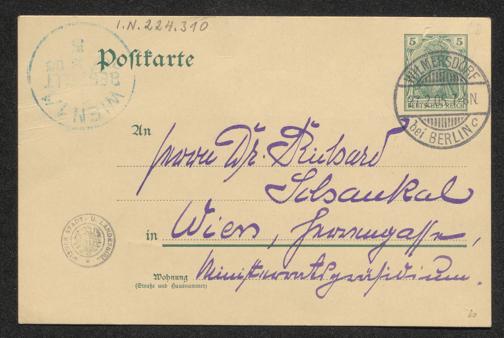 I.N. 224.310
Postkarte
5
5
DEUTSCHES REICH
WILMERSDORF
bei BERLIN c
WIEN 1/1
BESTELLT
An
Herrn Dr. Richard
Schaukal
in Wien, Herrengasse,
Ministerratspräsidium.
Wohnung
(Straße und Hausnummer)